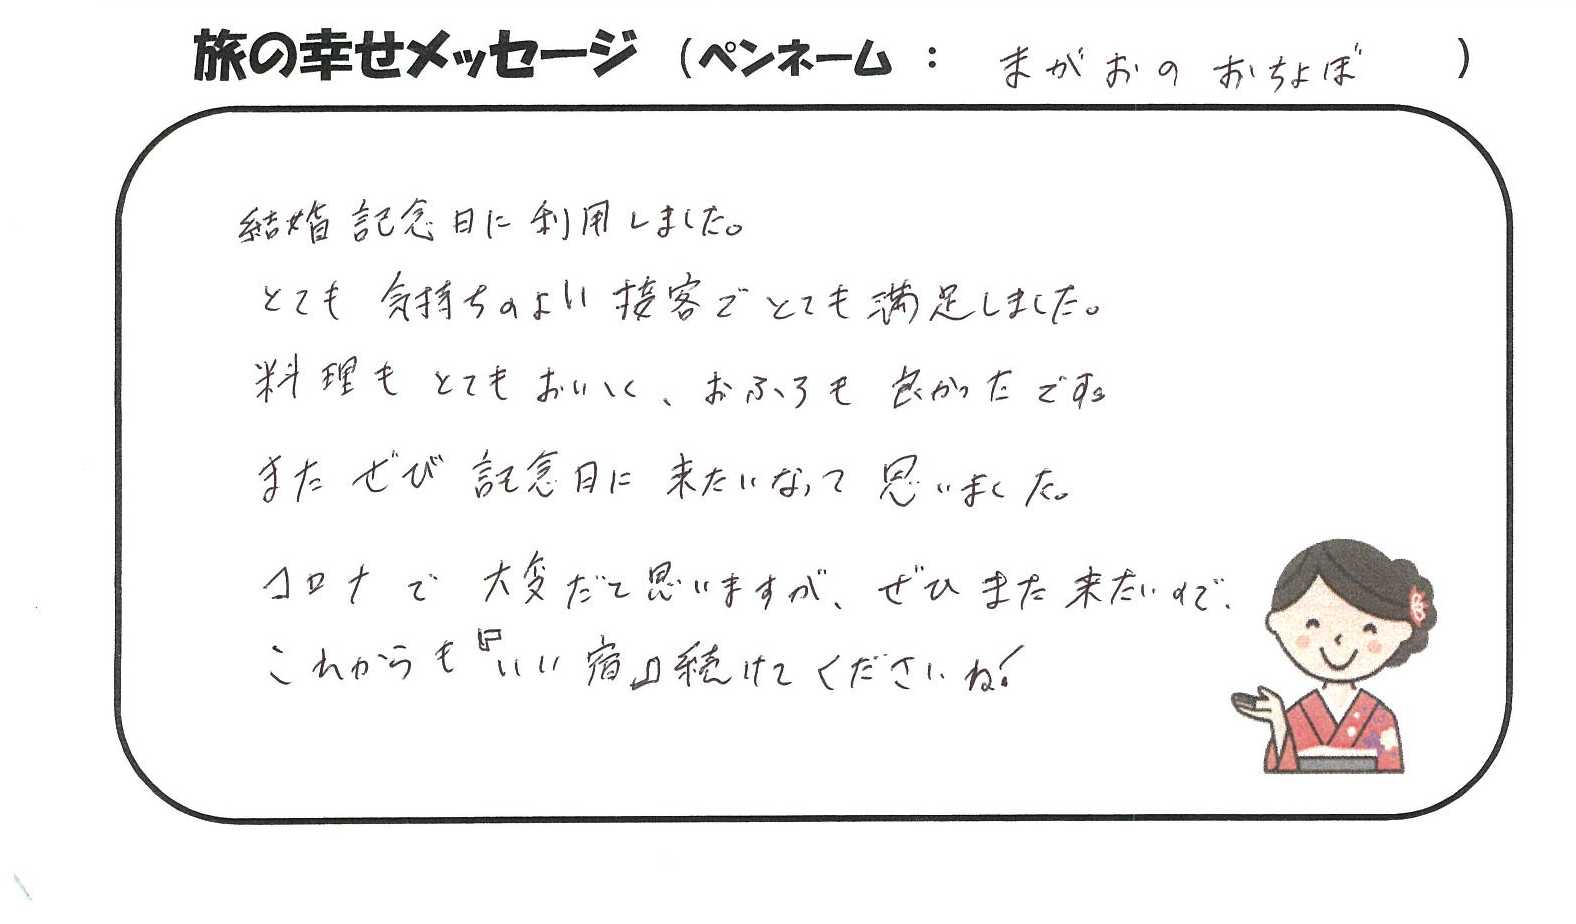 旅の幸せメッセージ (ペンネーム : まがおの おちょぼ )
結婚記念日に利用しました。
とても 気持ちのよい 接客でとても満足しました。
料理も とてもおいしく、おふろも 良かったです。
またぜひ 記念日に 来たいなって 思いました。
コロナで 大変だと思いますが、ぜひまた来たいので、
これからも『いい宿』続けてくださいね!